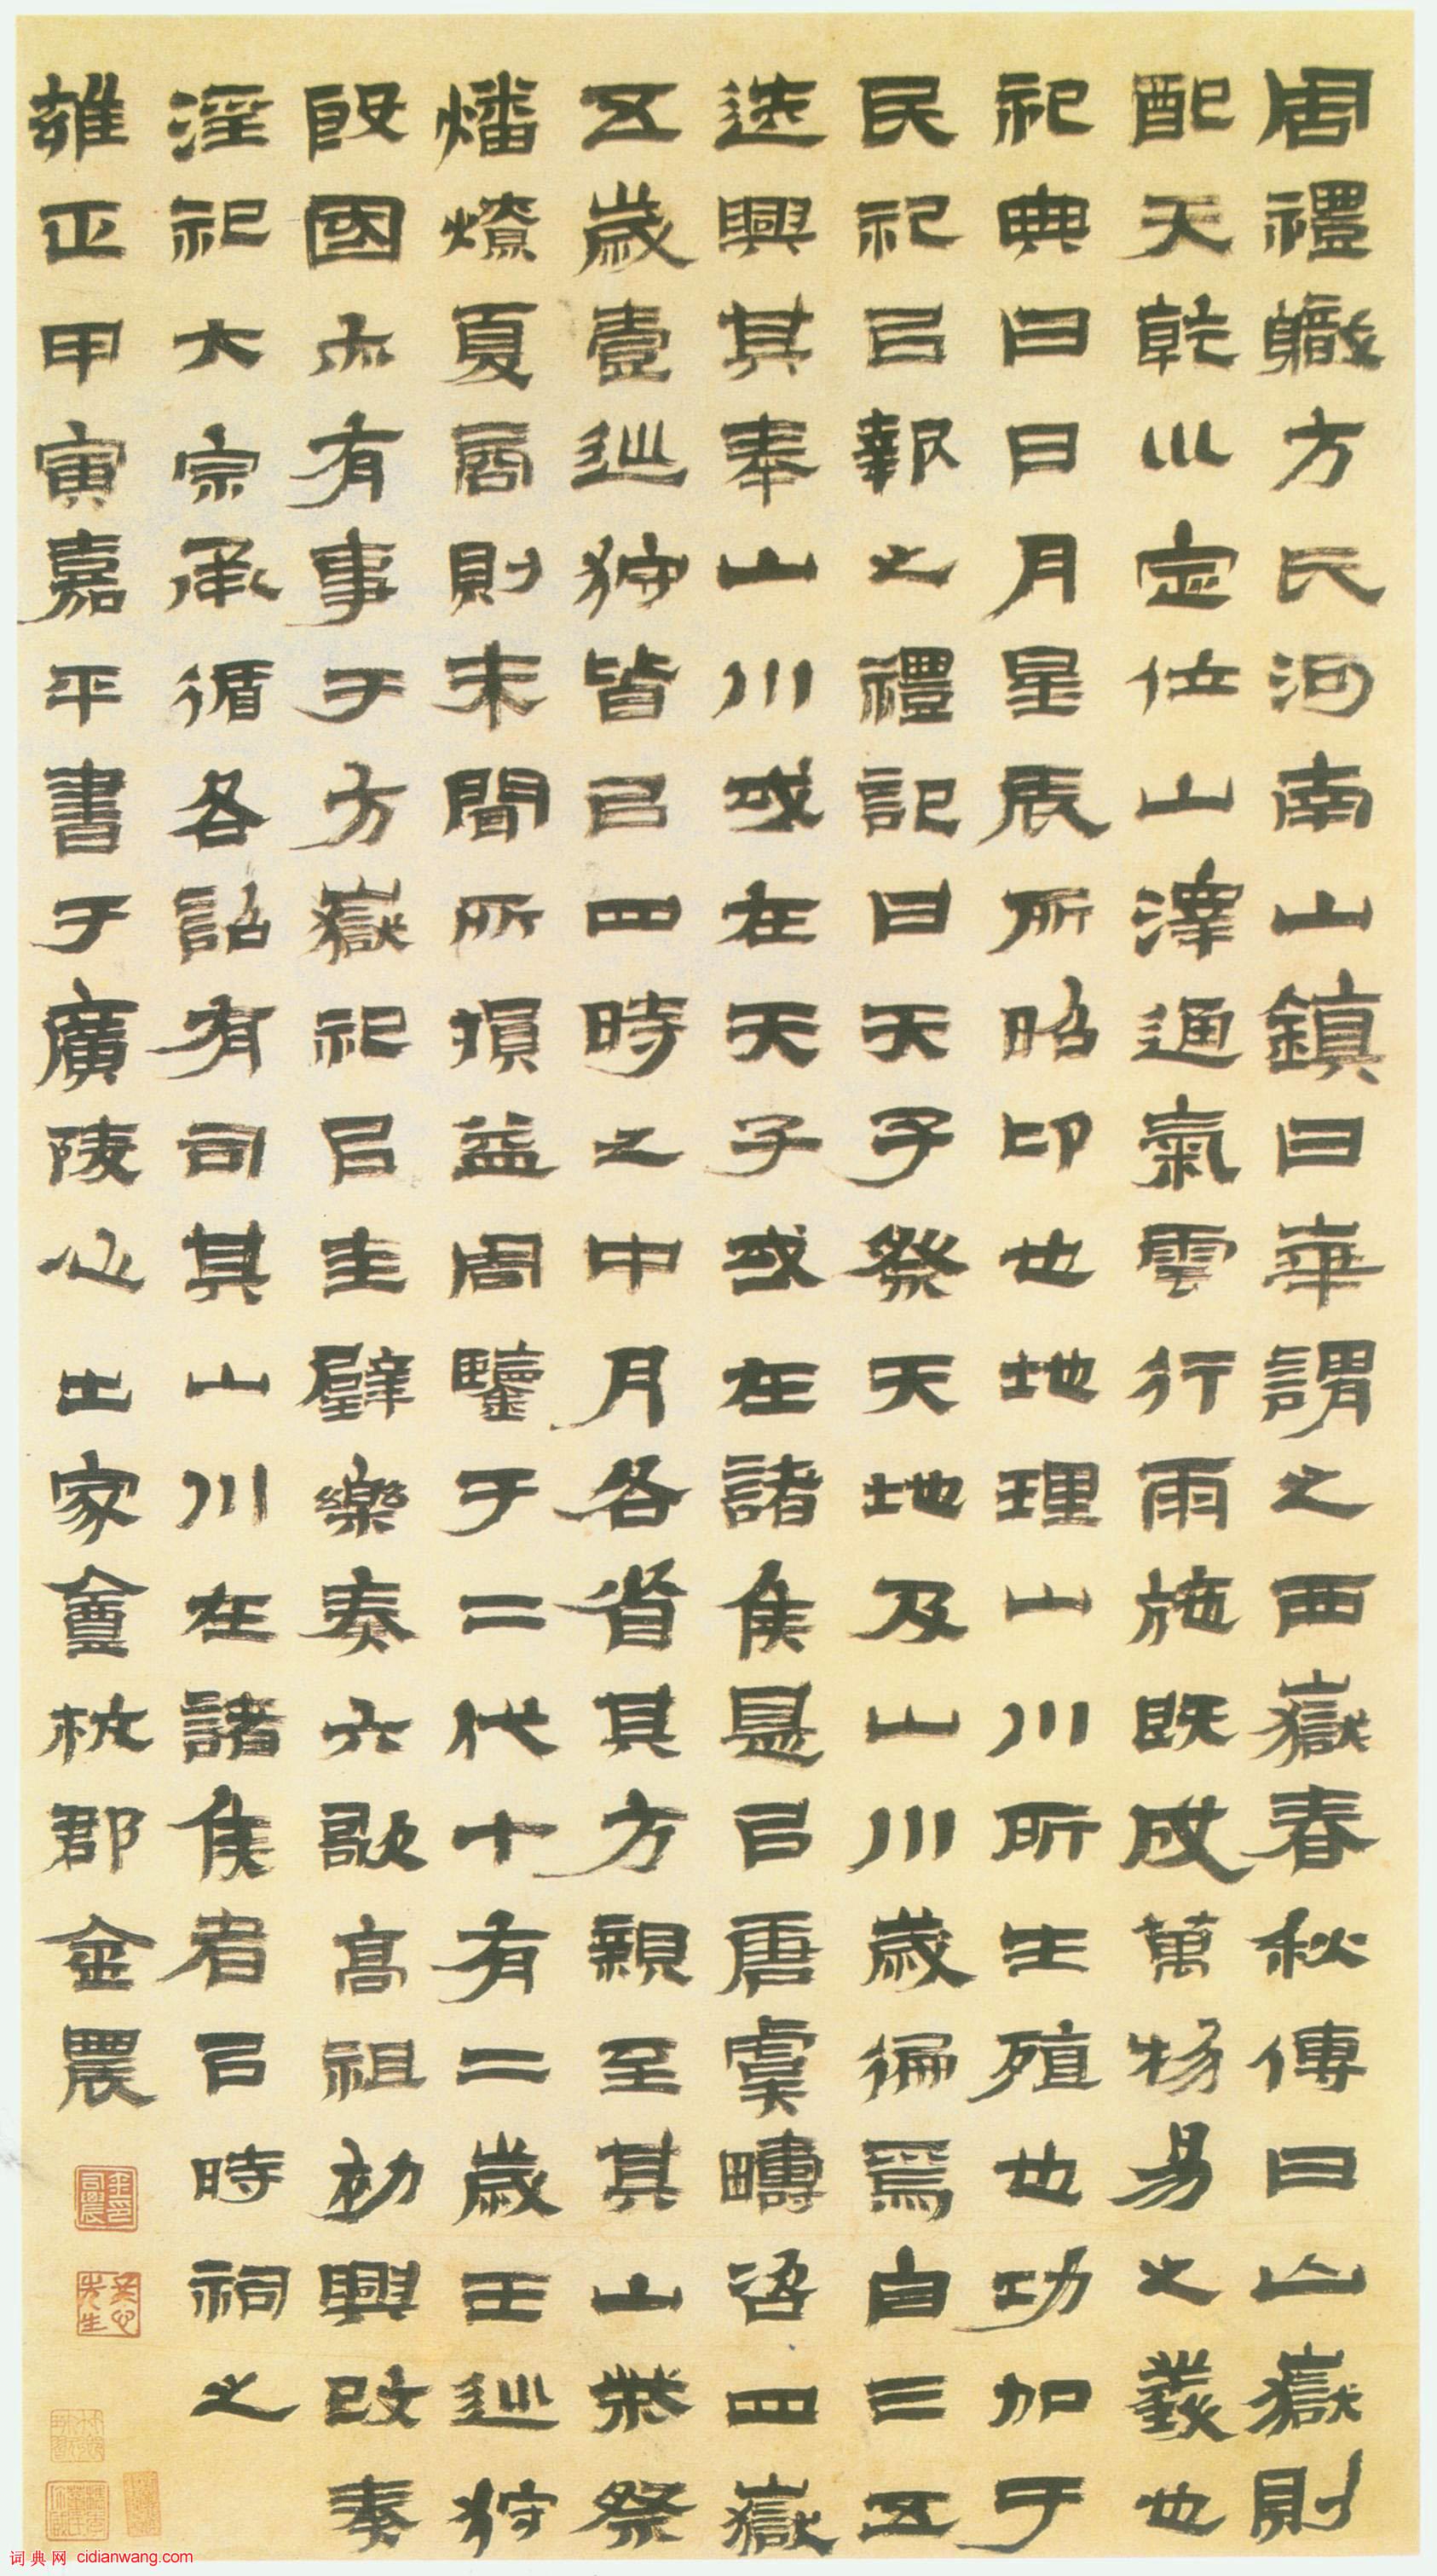 周禮職方氏河南山鎮曰華謂之西嶽春秋傳曰山嶽則
配天乾巛定位山澤通氣雲行雨施既成萬物易之義也
祀典曰日月星辰所昭卬也地理山川所生殖也功加于
民祀㠯報之禮記曰天子祭天地及山川歲徧焉自三五
迭興其奉山川或在天子或在諸侯是㠯唐虞疇咨四嶽
五歲壹巡狩皆㠯四時之中月各省其方親至其山柴祭
燔燎夏商則未聞所損益周鑒于二代十有二歲王巡狩
殷國亦有事于方嶽祀㠯圭璧樂奏六歌高祖初興改秦
淫祀大宗承循各詔有司其山川在諸侯者㠯時祠之
雍正甲寅嘉平書于廣陵心出家盦杭郡金農
金印司農
冬心先生
词典网 cidianwang.com